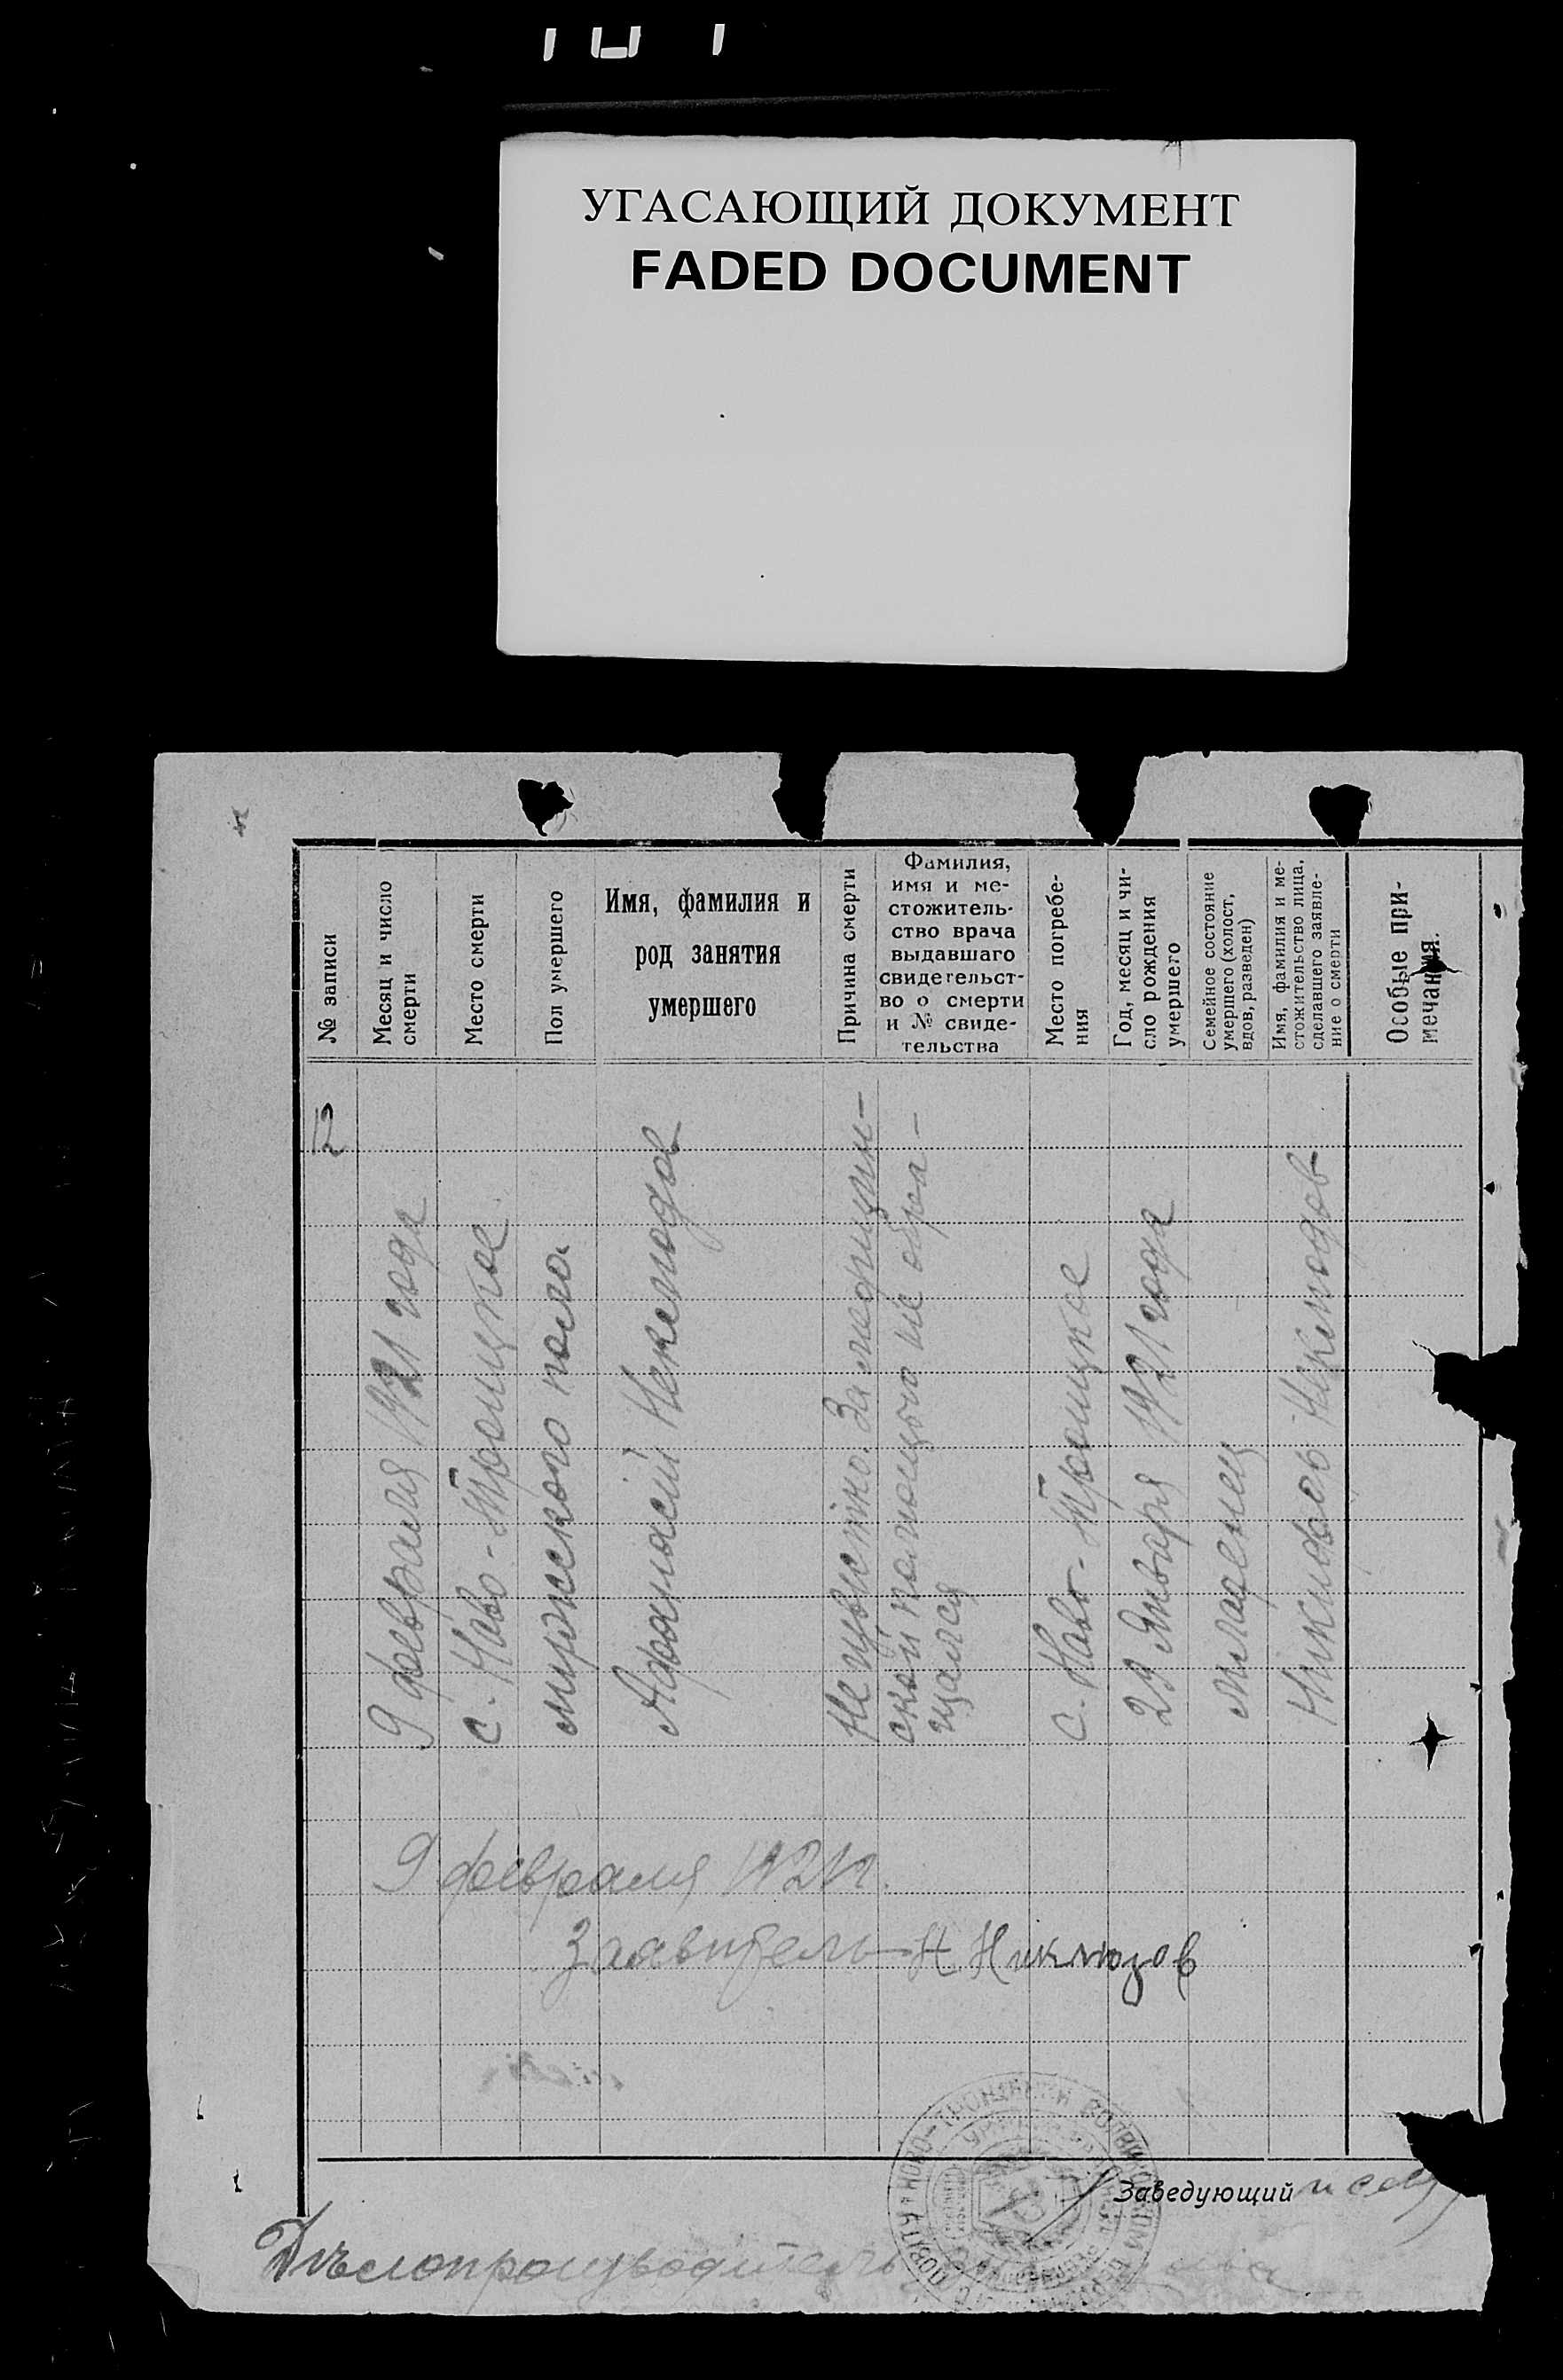 УГАСАЮЩИЙ ДОКУМЕНТ
FADED DOCUMENT
№ записи
Месяц и число
смерти
Место смерти
Пол умершего
Имя, фамилия и
род занятия
умершего
Причина смерти
Фамилия,
имя и ме-
стожитель-
ство врача
выдавшаго
свидетельст-
во о смерти
и № свиде-
тельства
Место погребе-
ния
Год, месяц и чи-
сло рождения
умершего
Семейное состояние
умершего (холост,
вдов, разведен)
Имя, фамилия и ме-
стожительство лица,
сделавшего заявле-
ние о смерти
Особые при-
мечания.
12
9 февраля 1921 года
с. Ново-Троицкое
мужского пола
Афанасий Неклюдов
Неизвестно. За медицин-
ской помощью не обра-
щался
с. Ново-Троицкое
29 Января 1921 года
младенец
Никифоръ Неклюдов
9 февраля 1921г.
Заявитель Н Никлюзов
Заведующий
Дѣлопроизводитель